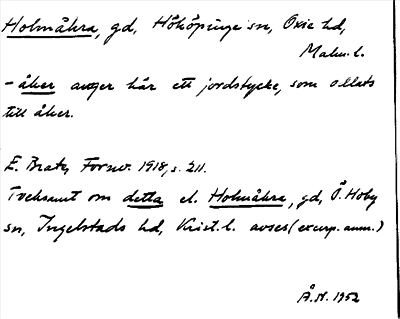 Holmåkra, gd, Hököpinge sn, Oxie hd,
Malm. l.
-åker anger här ett jordstycke, som odlats
till åker.
E. Brate, Fornv. 1918, s. 211.
Tveksamt om detta el. Holmåkra, gd, Ö. Hoby
sn, Ingelstads hd, Krist. l. avses (excerp. anm.)
Å. N. 1952